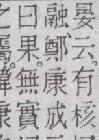 晏云有核
融鄭康成
曰果無實
之屬韓康